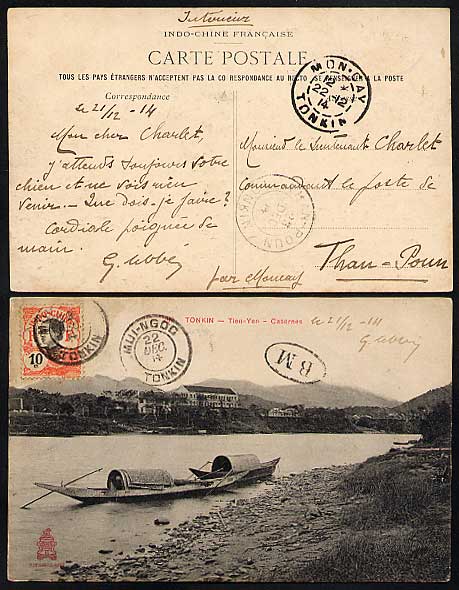 INDO-CHINE FRANÇAISE
CARTE POSTALE
TOUS LES PAYS ÉTRANGERS N'ACCEPTENT PAS LA CO RESPONDANCE AU RECTO SE RENSEIGNER A LA POSTE
MON-CAY
22 12
14
TONKIN
Correspondance
le 21/12 - 14
Mon cher Charlet,
j'attends toujours votre
chien et ne vois rien
venir. - Que dois-je faire?
Cordiale poignée de
main.
Monsieur le Lieutenant Charlet
Commandant le poste de
Than-Poun
par Moncay
POUN
TONKIN — Tien-Yen — Casernes
le 21/12 - 14
10
TONKIN
MUI-NGOC
22
DEC.
14
TONKIN
B M